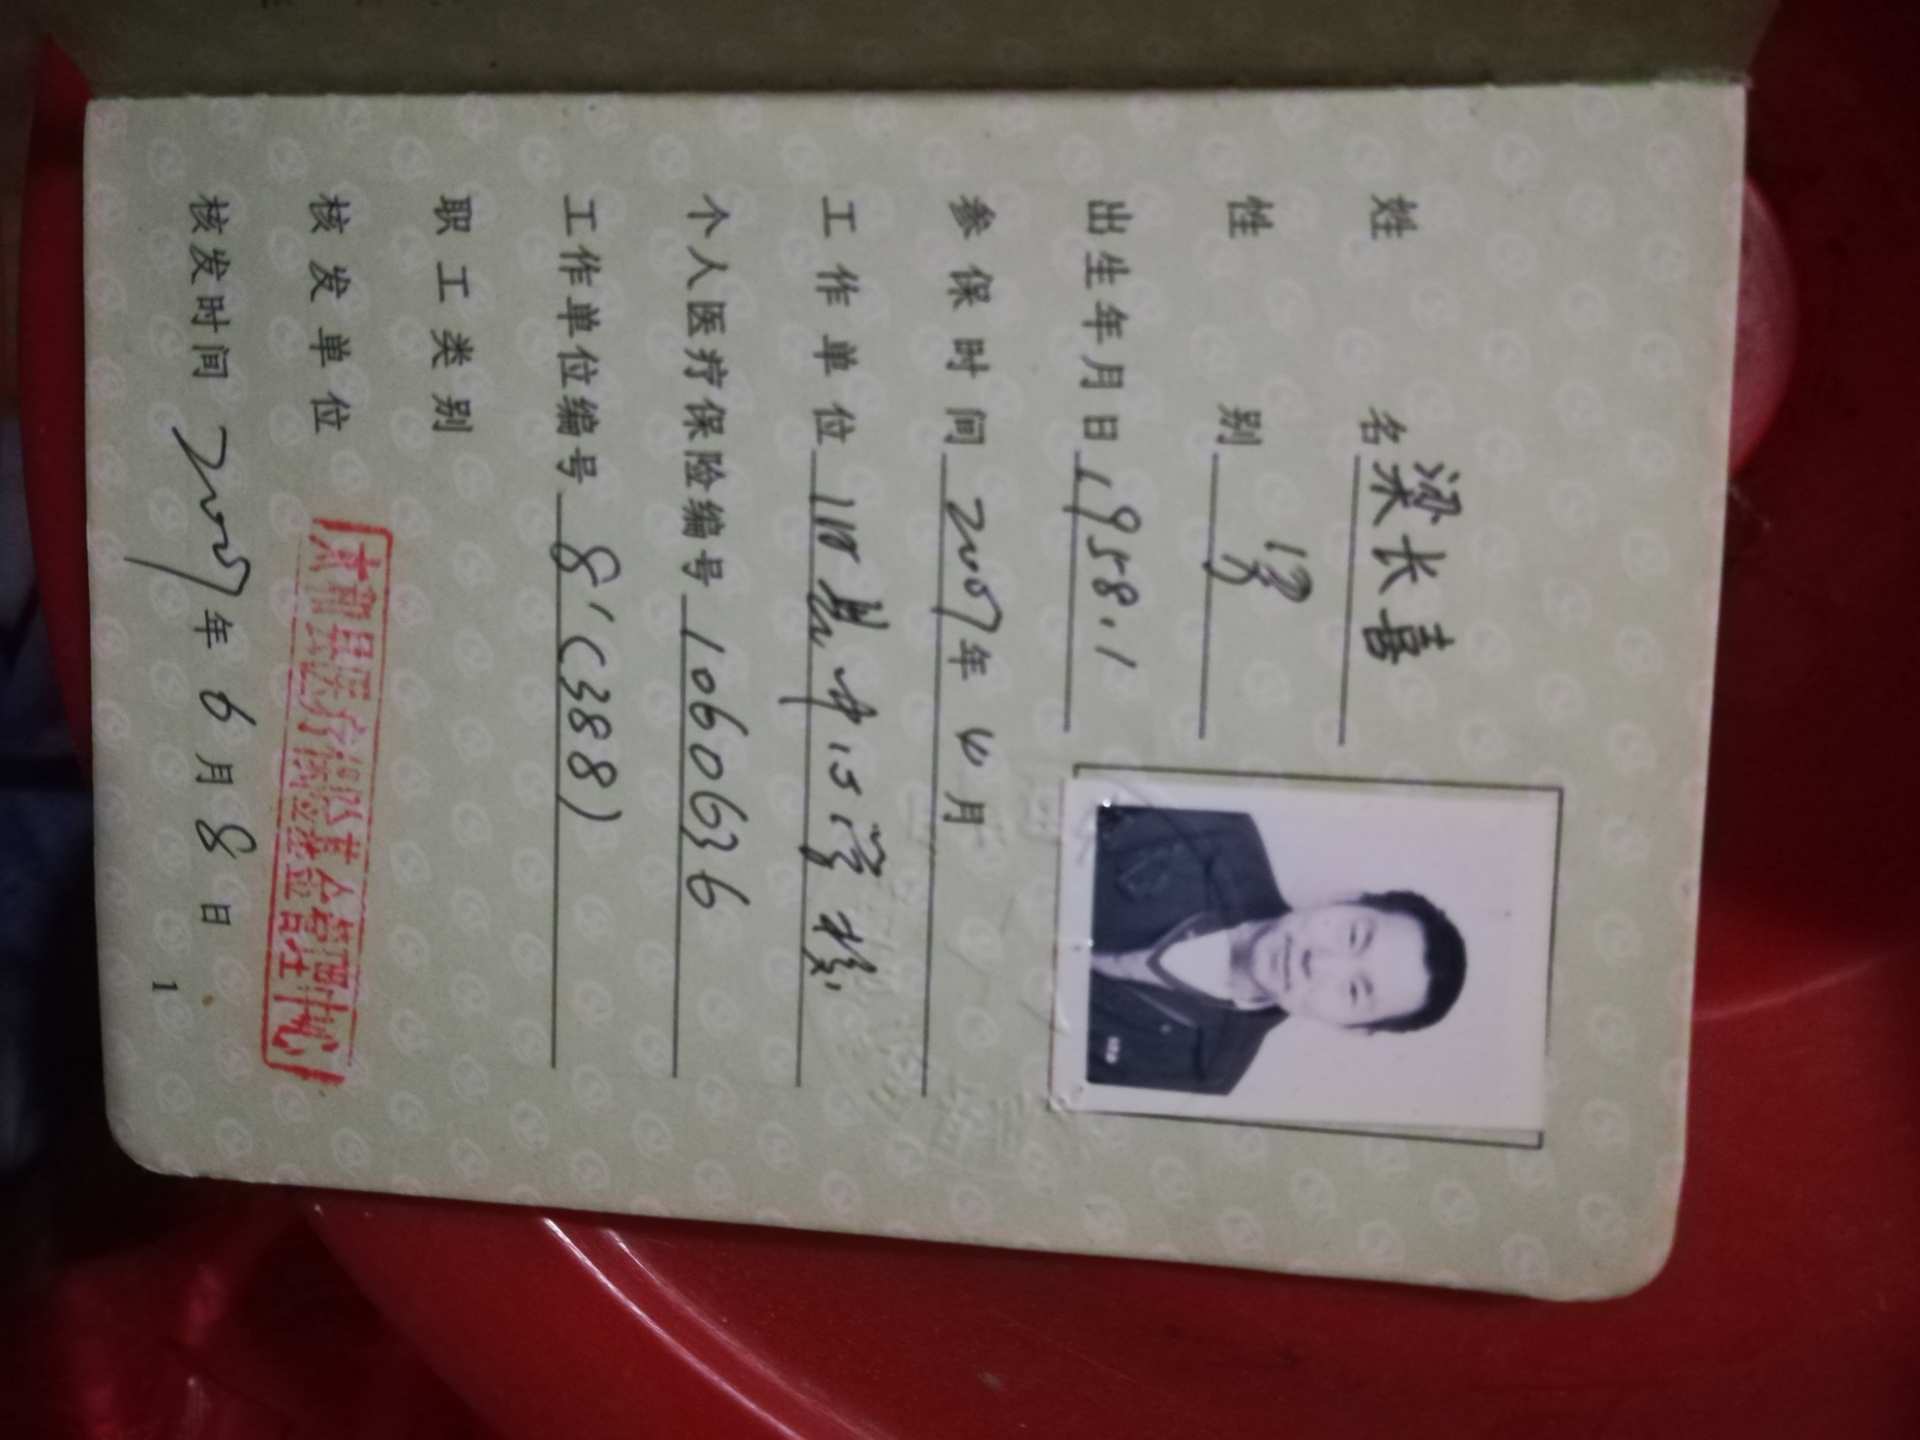 姓 名 梁长喜
性 别 男
出生年月日 1958.1
参保时间 2007年4月
工作单位 旧县中心学校
个人医疗保险编号 1060636
工作单位编号 8'(388)
职工类别
核发单位 太和县医疗保险基金管理中心
核发时间 2007年6月8日
1